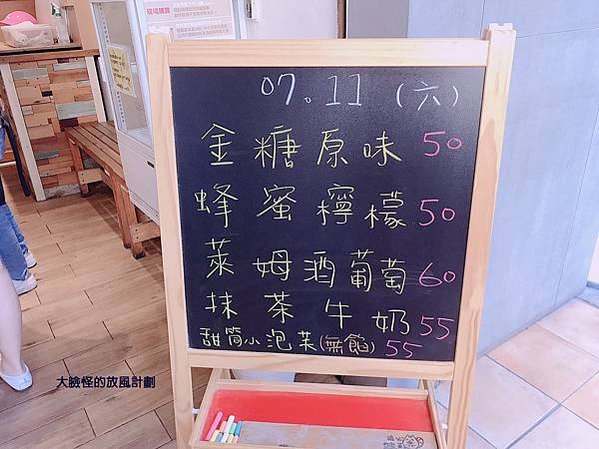 07.11（六）
金糖原味 50
蜂蜜檸檬 50
萊姆酒葡萄 60
抹茶牛奶 55
甜筒小泡芙(無餡) 55
大臉怪的放風計劃